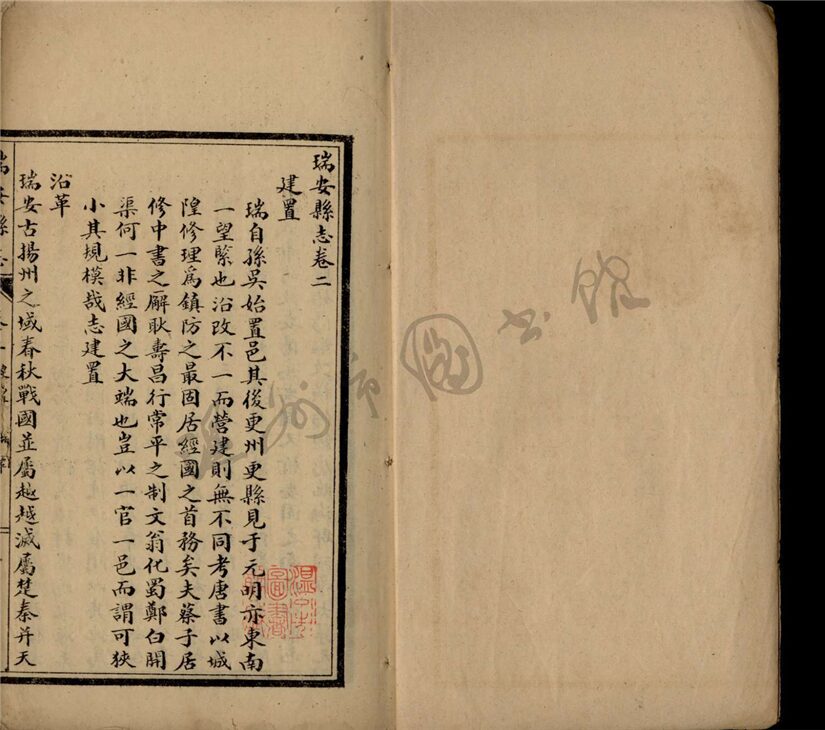 瑞安縣志卷二
建置
瑞自孫吳始置邑其後更州更縣見于元明亦東南
一望縣也沿改不一而營建則無不同考唐書以城
隍修理爲鎮防之最固居經國之首務矣夫蔡子居
修中書之廨耿壽昌行常平之制文翁化蜀鄭白開
渠何一非經國之大端也豈以一官一邑而謂可狹
小其規模哉志建置
沿革
瑞安古揚州之域春秋戰國並屬越越滅屬楚秦并天
瑞安縣志